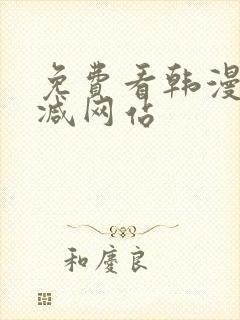 免费看韩漫
减网站
和庆良